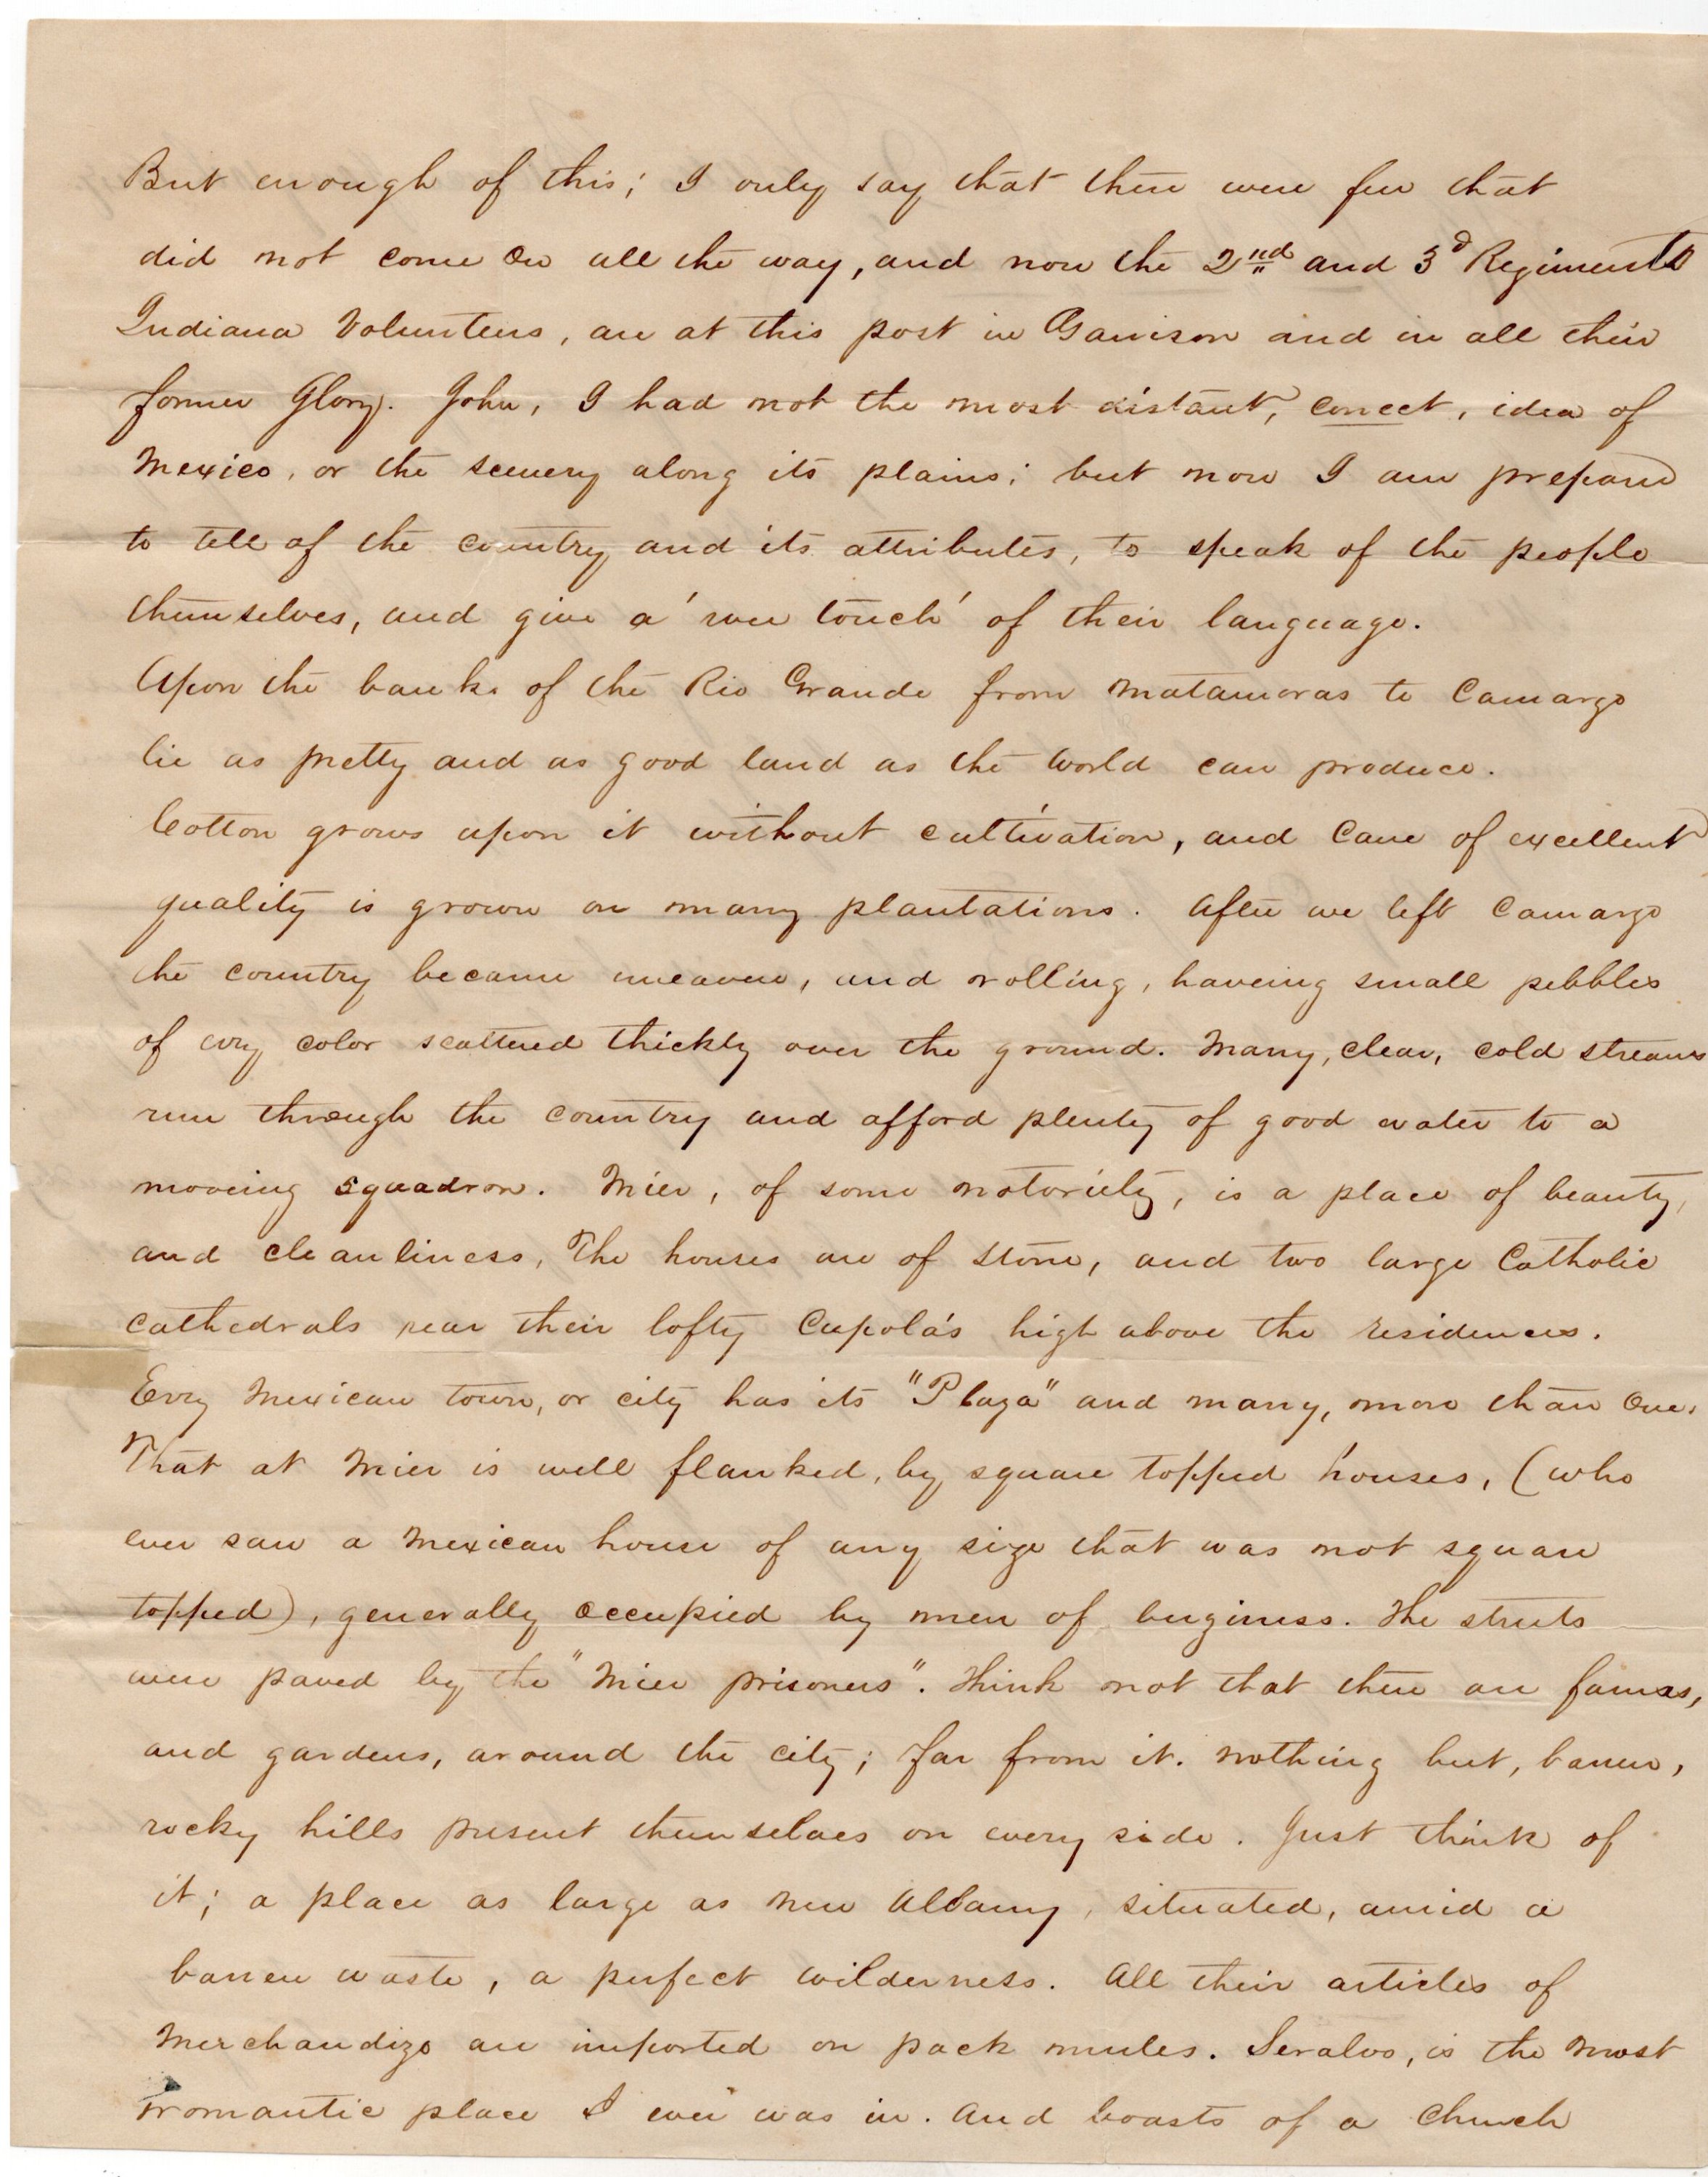 But enough of this; I only say that there were few that
did not come on all the way, and now the 2nd and 3d Regiments
Indiana Volunteers, are at this post in Garrison and in all their
former Glory. John, I had not the most distant, correct, idea of
Mexico, or the scenery along its plains; but now I am prepard
to tell of the country and its attributes, to speak of the people
themselves, and give a 'wee touch' of their language.
Upon the banks of the Rio Grande from Matamoras to Camargo
lie as pretty and as good land as the world can produce.
Cotton grows upon it without cultivation, and Cane of excellent
quality is grown on many plantations. After we left Camargo
the country became uneaven, and rolling, haveing small pebbles
of evry color scattered thickly over the ground. Many, clear, cold streams
run through the country and afford plenty of good water to a
moveing squadron. Mier, of some notoriety, is a place of beauty,
and cleanliness, The houses are of stone, and two large Catholic
cathedrals rear their lofty Cupola's high above the residences.
Evry Mexican town, or city has its "Plaza" and many, more than one.
That at Mier is well flanked, by square topped houses, (who
ever saw a Mexican house of any size that was not square
topped), generally occupied by men of buziness. The streets
were paved by the "Mier prisoners". Think not that there are farms,
and gardens, around the city; far from it. Nothing but, barren,
rocky hills present themselves on every side. Just think of
it; a place as large as New Albany, situated, amid a
barren waste, a perfect wilderness. All their articles of
Merchandize are imported on pack mules. Seralvo, is the most
romantic place I ever was in. And boasts of a Church